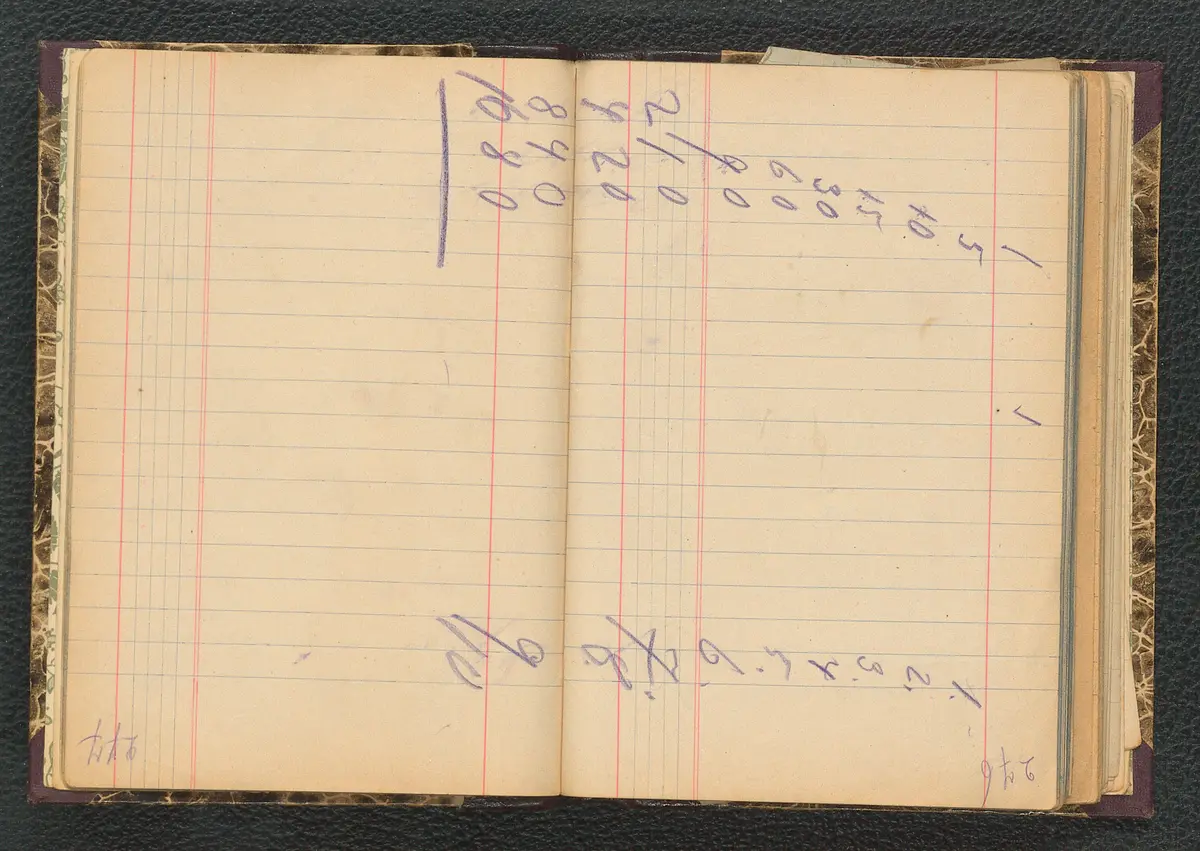 1
5
10
15
30
60
90
210
420
840
1680
1
1.
2.
3.
4
5.
6.
7.
8.
9
10
276
277